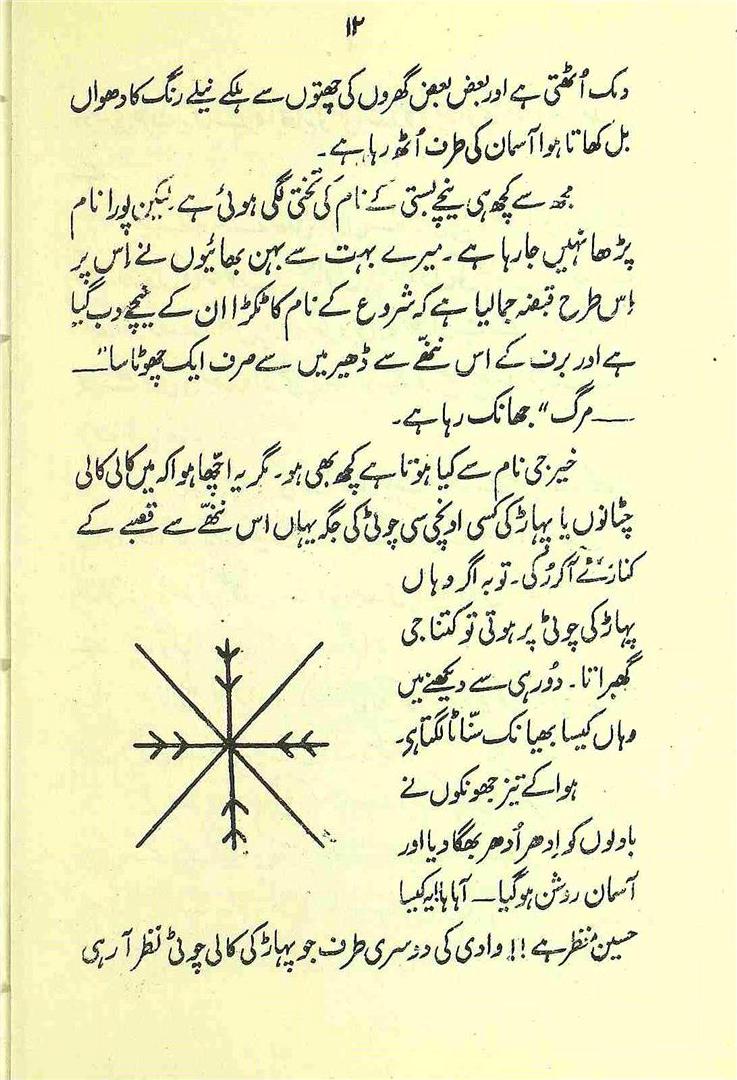 ۱۲
دمک اُٹھتی ہے اور بعض بعض گھروں کی چھتوں سے ہلکے نیلے رنگ کا دھواں
بل کھاتا ہوا آسمان کی طرف اُٹھ رہا ہے۔
مجھ سے کچھ ہی نیچے بستی کے نام کی تختی لگی ہوئی ہے لیکن پورا نام
پڑھا نہیں جا رہا ہے۔ میرے بہت سے بہن بھائیوں نے اِس پر
اِس طرح قبضہ جما لیا ہے کہ شروع کے نام کا ٹکڑا ان کے نیچے دب گیا
ہے اور برف کے اس ننھے سے ڈھیر میں سے صرف ایک چھوٹا سا "—
— مرگ" جھانک رہا ہے۔
خیر جی نام سے کیا ہوتا ہے کچھ بھی ہو۔ مگر یہ اچھا ہوا کہ میں کالی کالی
چٹانوں یا پہاڑ کی کسی اونچی سی چوٹی کی جگہ یہاں اس ننھے سے قصبے کے
کنارے آکر رُکی۔ توبہ اگر وہاں
پہاڑ کی چوٹی پر ہوتی تو کتنا جی
گھبراتا۔ دُور ہی سے دیکھنے میں
وہاں کیسا بھیانک سنّاٹا لگتا ہے۔
ہوا کے تیز جھونکوں نے
بادلوں کو اِدھر اُدھر بھگا دیا اور
آسمان روشن ہوگیا — آہاہا! یہ کیسا
حسین منظر ہے!! وادی کی دوسری طرف جو پہاڑ کی کالی چوٹی نظر آ رہی